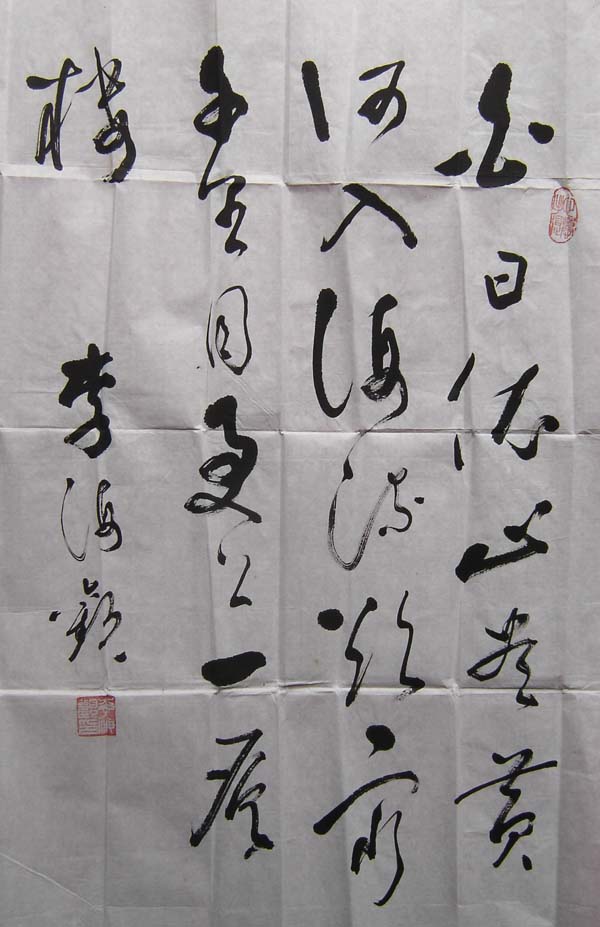 白日依山尽黄
河入海流欲穷
千里目更上一层
楼
李海